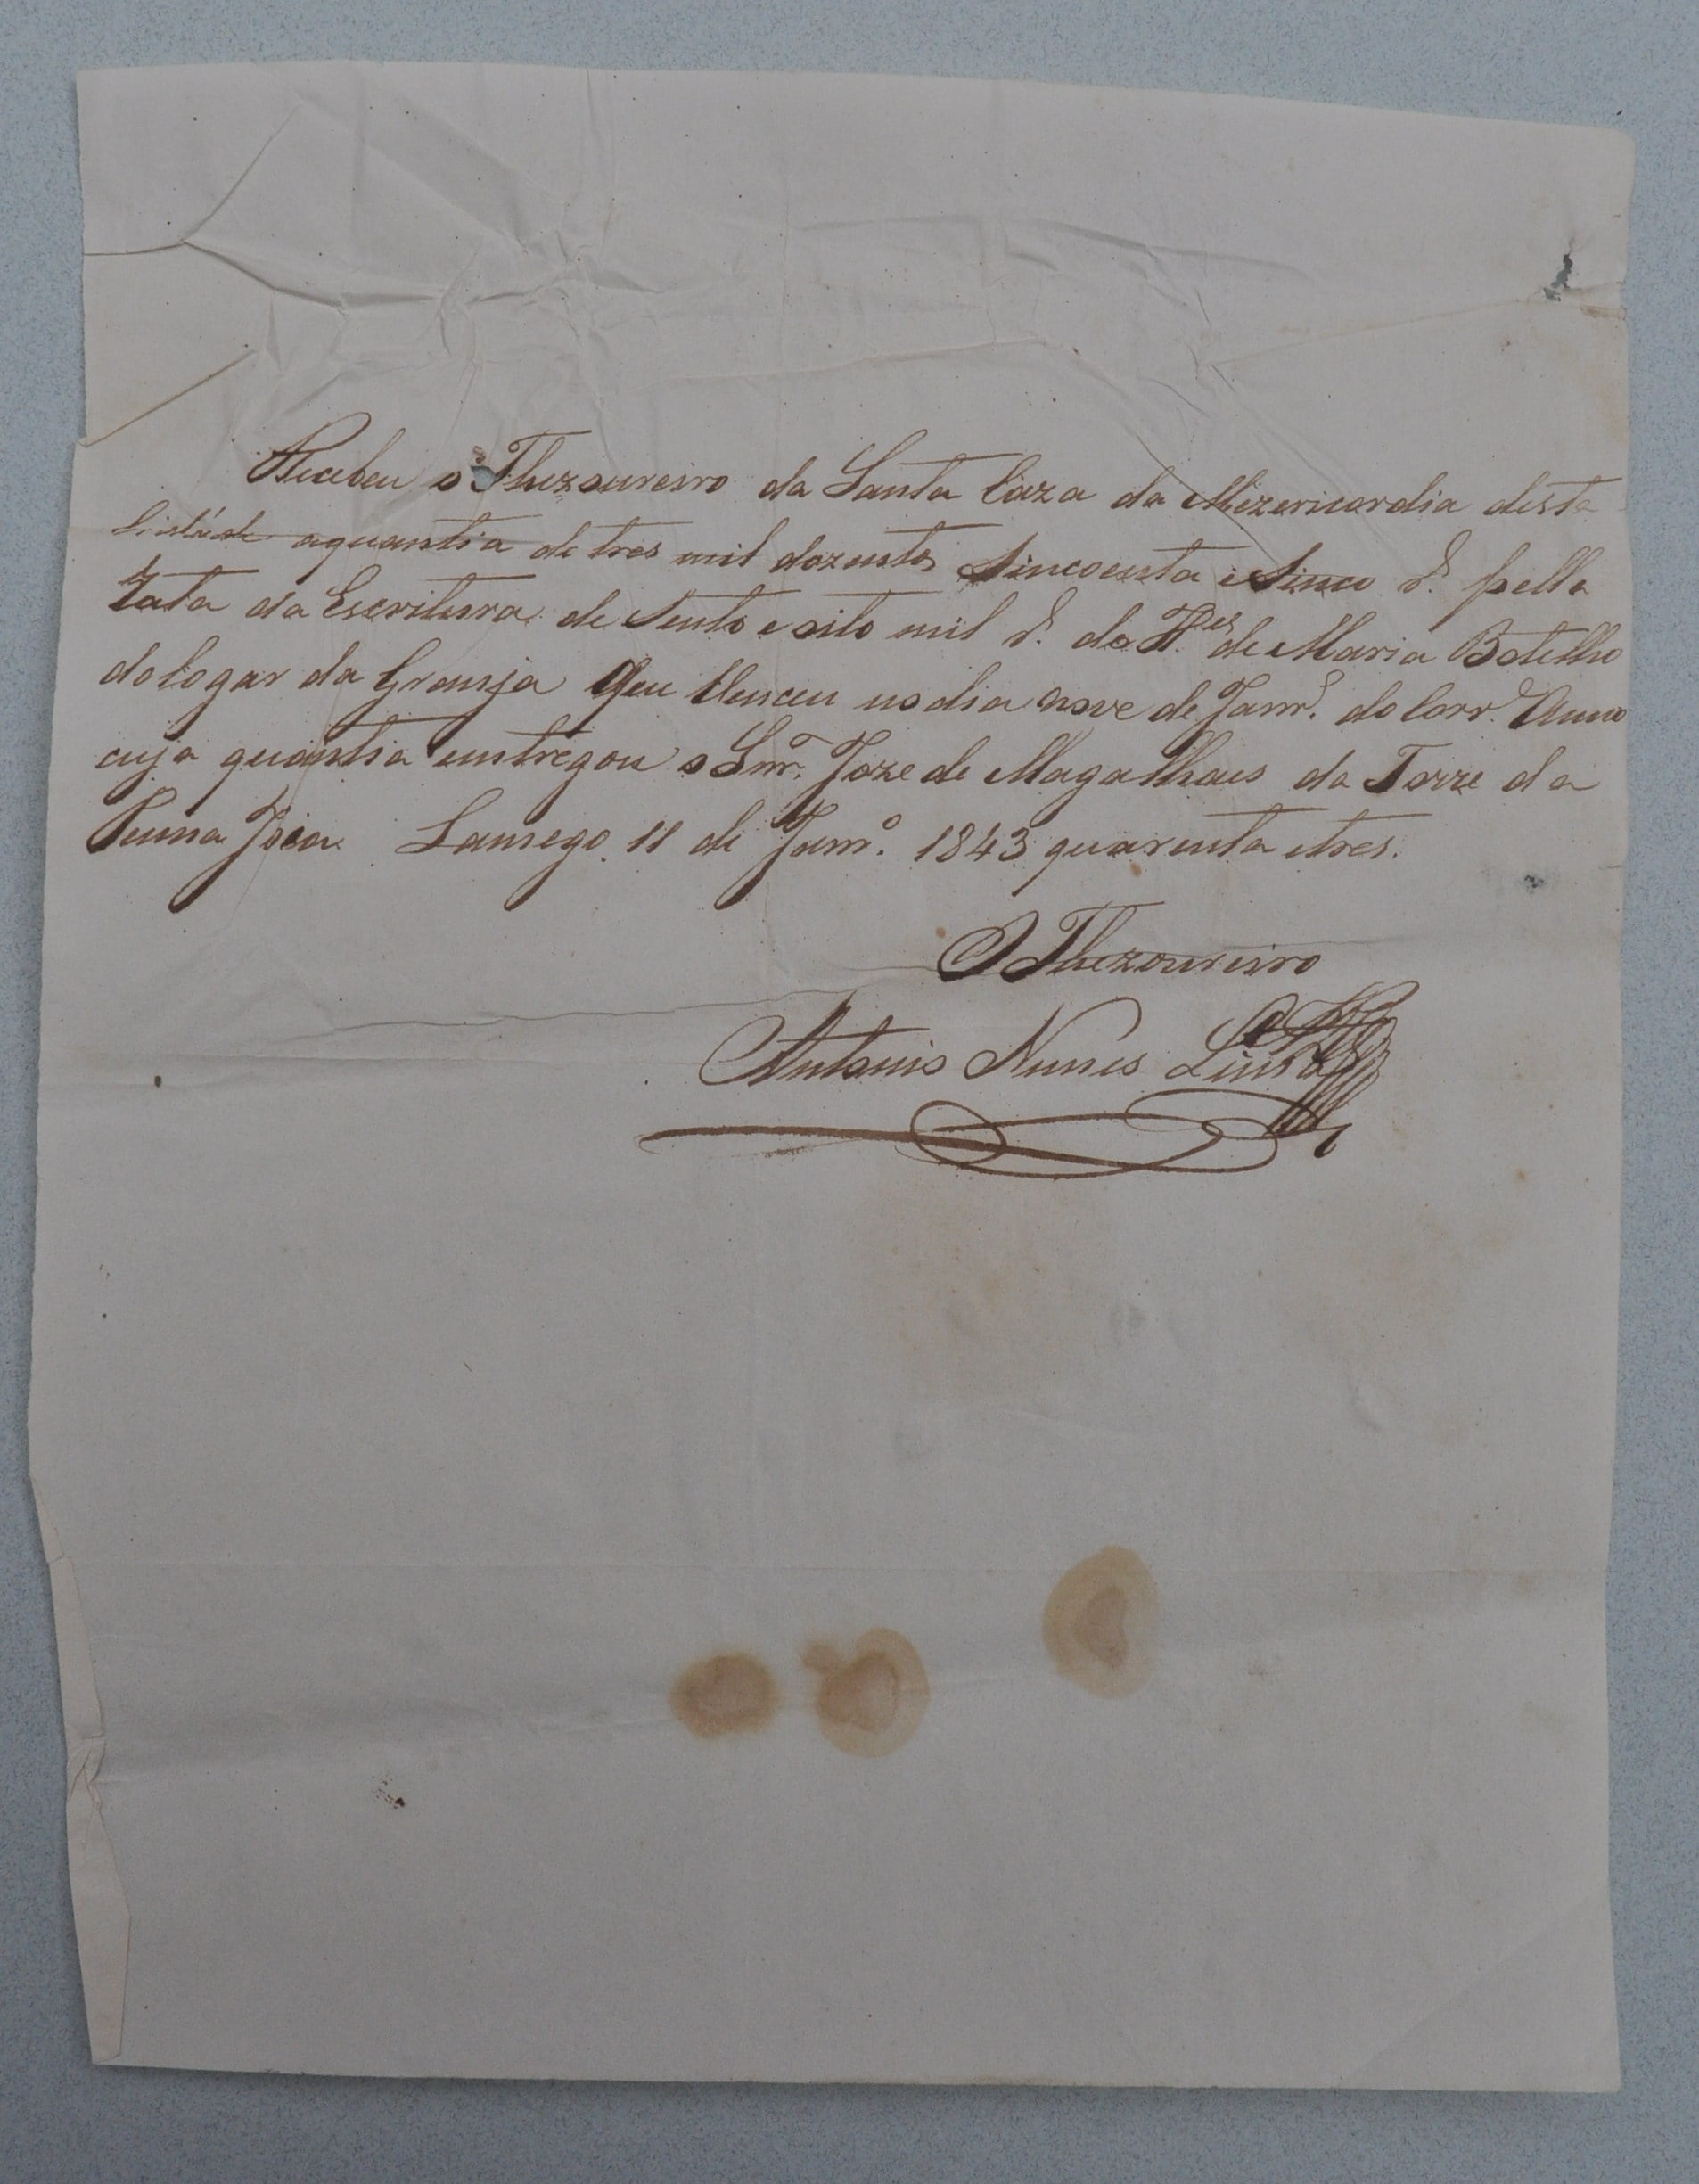 Recebeu o Thezoureiro da Santa Caza da Mizericordia desta
Cidáde aquantia de tres mil dozentos Sincoenta e Sinco r.s pella
Rata da Escritura de Sento e oito mil r.s do H.es de Maria Botelho
do logar da Granja Qeu Venceu no dia nove de Janr.o do Corr.e Anno
cuja quantia entregou o Snr. Joze de Magalhaes da Torre da
Penna Joia. Lamego 11 de Janr.o 1843 quarenta e tres.
O Thezoureiro
Antonio Nunes